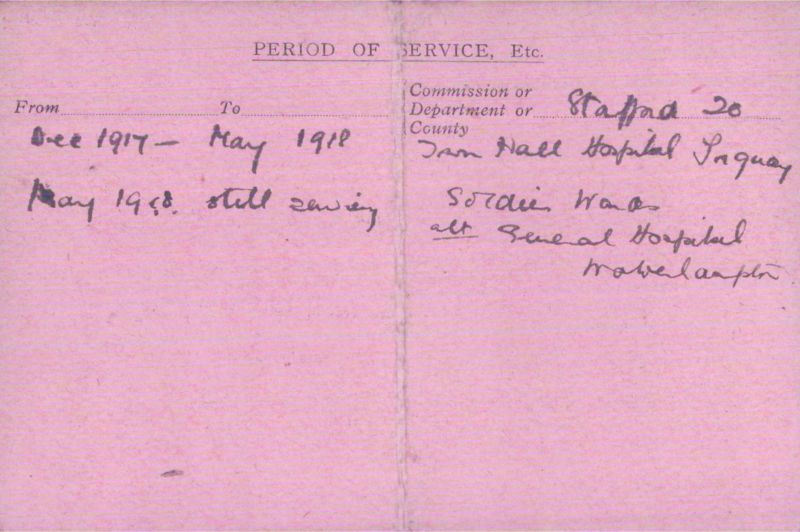 PERIOD OF SERVICE, Etc.
From To
Commission or
Department or Stafford 20
County
Dec 1917 - May 1918
Town Hall Hospital Torquay
May 1918. still serving
Soldiers Wards
att General Hospital
Wolverhampton